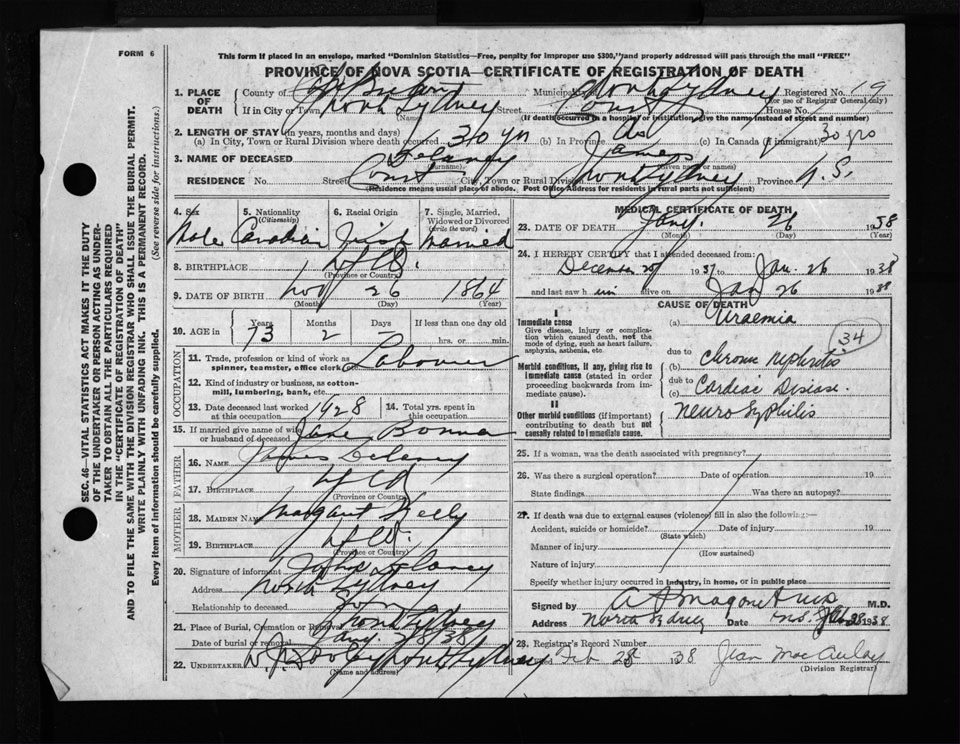 FORM 6
This form if placed in an envelope, marked "Dominion Statistics—Free, penalty for improper use $300," and properly addressed will pass through the mail "FREE"
PROVINCE OF NOVA SCOTIA—CERTIFICATE OF REGISTRATION OF DEATH
1. PLACE OF DEATH
County of Cape Breton Municipality Registered No. 19
(For use of Registrar General only)
If in City or Town North Sydney Street Court House No.
(Name) (If death occurred in a hospital or institution, give the name instead of street and number)
2. LENGTH OF STAY (in years, months and days)
(a) In City, Town or Rural Division where death occurred 30 yrs (b) In Province As (c) In Canada (if immigrant) 30 yrs
3. NAME OF DECEASED Delaney James
(Surname) (Given name or names)
RESIDENCE No. Street Court City, Town or Rural Division North Sydney Province N.S.
(Residence means usual place of abode. Post Office Address for residents in rural parts not sufficient)
SEC. 46—VITAL STATISTICS ACT MAKES IT THE DUTY
OF THE UNDERTAKER OR PERSON ACTING AS UNDER-
TAKER TO OBTAIN ALL THE PARTICULARS REQUIRED
IN THE "CERTIFICATE OF REGISTRATION OF DEATH"
AND TO FILE THE SAME WITH THE DIVISION REGISTRAR WHO SHALL ISSUE THE BURIAL PERMIT.
WRITE PLAINLY WITH UNFADING INK. THIS IS A PERMANENT RECORD.
Every item of information should be carefully supplied. (See reverse side for instructions.)
4. Sex 5. Nationality (Citizenship) 6. Racial Origin 7. Single, Married, Widowed or Divorced (write the word)
Male Canadian Irish Married
8. BIRTHPLACE Nfld.
(Province or Country)
9. DATE OF BIRTH Nov 26 1864
(Month) (Day) (Year)
10. AGE in Years Months Days If less than one day old
73 2 – hrs. or min.
OCCUPATION
11. Trade, profession or kind of work as spinner, teamster, office clerk Labourer
12. Kind of industry or business, as cotton-mill, lumbering, bank, etc.
13. Date deceased last worked at this occupation 1928 14. Total yrs. spent in this occupation
15. If married give name of wife or husband of deceased Jane Bonnar
FATHER
16. Name James Delaney
17. Birthplace Nfld
(Province or Country)
MOTHER
18. Maiden Name Margaret Kelly
19. Birthplace Nfld.
(Province or Country)
20. Signature of informant John Delaney
Address North Sydney
Relationship to deceased Son
21. Place of Burial, Cremation or Removal North Sydney
Date of burial or removal Jany. 28/38
22. UNDERTAKER North Sydney
(Name and address)
MEDICAL CERTIFICATE OF DEATH
23. DATE OF DEATH Jany. 26 1938
(Month) (Day) (Year)
24. I HEREBY CERTIFY that I attended deceased from:
December 1937 to Jan. 26 1938
and last saw him alive on Jan 26 1938
CAUSE OF DEATH
I
Immediate cause
Give disease, injury or complication which caused death, not the mode of dying, such as heart failure, asphyxia, asthenia, etc.
(a) Uraemia
34
Morbid conditions, if any, giving rise to immediate cause (stated in order proceeding backwards from immediate cause).
due to (b) Chronic Nephritis
due to (c) Cardiac Disease
II
Other morbid conditions (if important) contributing to death but not causally related to immediate cause.
Neuro Syphilis
25. If a woman, was the death associated with pregnancy?
26. Was there a surgical operation? Date of operation 19
State findings Was there an autopsy?
27. If death was due to external causes (violence) fill in also the following:—
Accident, suicide or homicide? Date of injury 19
(State which)
Manner of injury
(How sustained)
Nature of injury
Specify whether injury occurred in industry, in home, or in public place
Signed by M.D.
Address North Sydney Date 1938
28. Registrar's Record Number
Filed Feb 28 1938 Jean MacAulay
(Division Registrar)